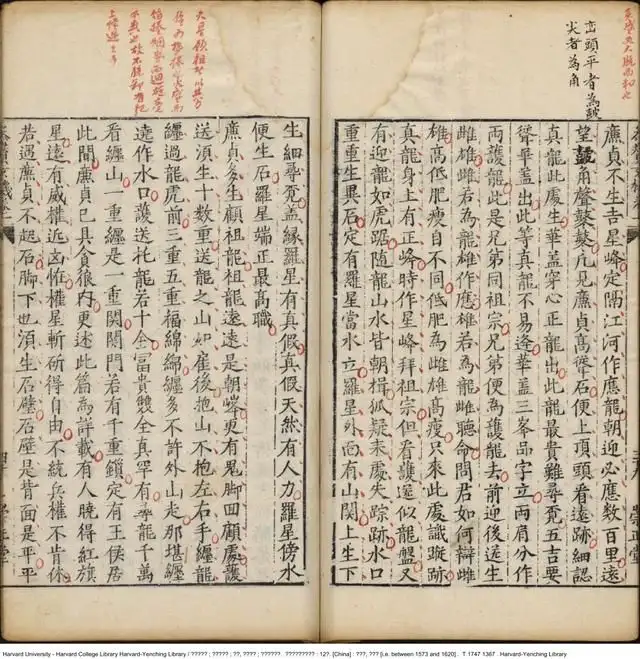 巒頭平者為鼓
尖者為角
廉貞不生吉星峰定隔江河作應龍朝迎必應數百里遠
望鼓角聲鼕鼕凡見廉貞高聳石便上頂頭看遠跡細認
真龍此處生華蓋穿心正龍出此龍最貴難尋覓五吉要
聳華蓋出此等真龍不易逢華蓋三峯品字立兩肩分作
兩護龍此是兄弟同祖宗兄弟便為護龍去前迎後送生
雌雄雌若為龍雄作應雄若為龍雌聽命問君如何辯雌
雄高低肥瘦自不同低肥為雌雄高瘦只來此處識蹤跡
真龍身上有正峰時作星峰拜祖宗但看護送似龍盤又
有迎龍如虎踞隨龍山水皆朝揖狐疑來處失踪跡水口
重重生異石定有羅星當水立羅星外尚有山關上生下
生細尋覓盖緣羅星有真假真假天然有人力羅星傍水
便生石羅星端正最高職
廉貞多生顧祖龍祖龍遠遠是朝峰更有鬼脚回顧處護
送須生十數重送龍之山如雇後抱山不抱左右手纏龍
纏過龍虎前三重五重福綿綿纏多不許外山走那堪纏
遶作水口護送托龍若十全富貴雙全真罕有尋龍千萬
看纏山一重纏是一重關關門若有千重鎖定有王侯居
此間廉貞已具貪狼內更述此篇為詳載有人曉得紅旗
星遠有威權近凶怪權星斬斫得自由不統兵權不肯休
若遇廉貞不起石脚下也須生石壁石壁是背面是平平
Harvard University - Harvard College Library Harvard-Yenching Library / ????? ; ????? ; ??, ???? ; ??????. ????????? : 12?. [China] : ???, ??? [i.e. between 1573 and 1620] . T 1747 1367 . Harvard-Yenching Library